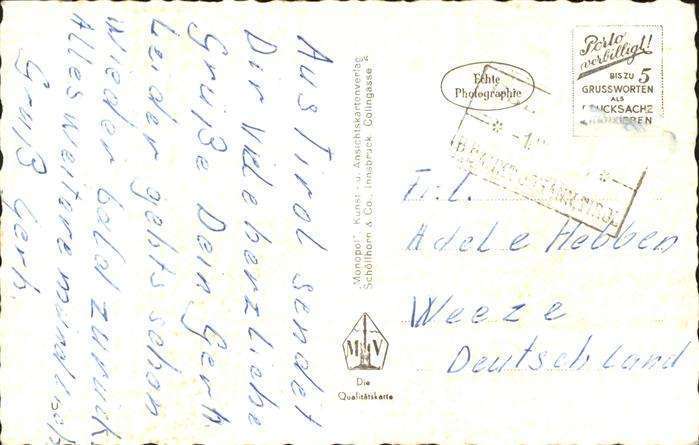 Aus Tirol sendet
Dir viele herzliche
Grüße Dein Gerh.
Leider gehts schon
wieder bald zurück
Alles weitere mündlich
Gruß Gerh.
"Monopol", Kunst- u. Ansichtskartenverlag
Schöllhorn & Co., Innsbruck, Collingasse
M V
Die
Qualitätskarte
Echte
Photographie
Porto
verbilligt!
BIS ZU 5
GRUSSWORTEN
ALS
DRUCKSACHE
FRANKIEREN
Frl.
Adele Hebben
Weeze
Deutschland